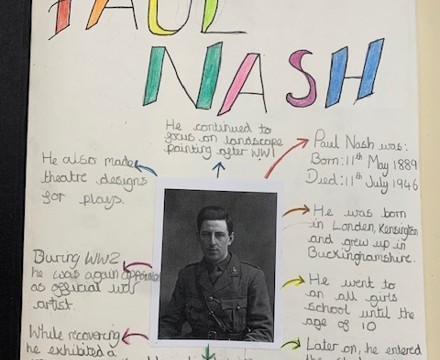 PAUL
NASH
He continued to
focus on landscape
painting after WW1
Paul Nash was:
Born: 11th May 1889
Died: 11th July 1946
He also made
theatre designs
for plays.
He was born
in London, Kensington
and grew up in
Buckinghamshire.
During WW2
he was again appointed
as official war
artist.
He went to
an all girls
school until the
age of 10
While recovering
he exhibited a
Later on, he entered